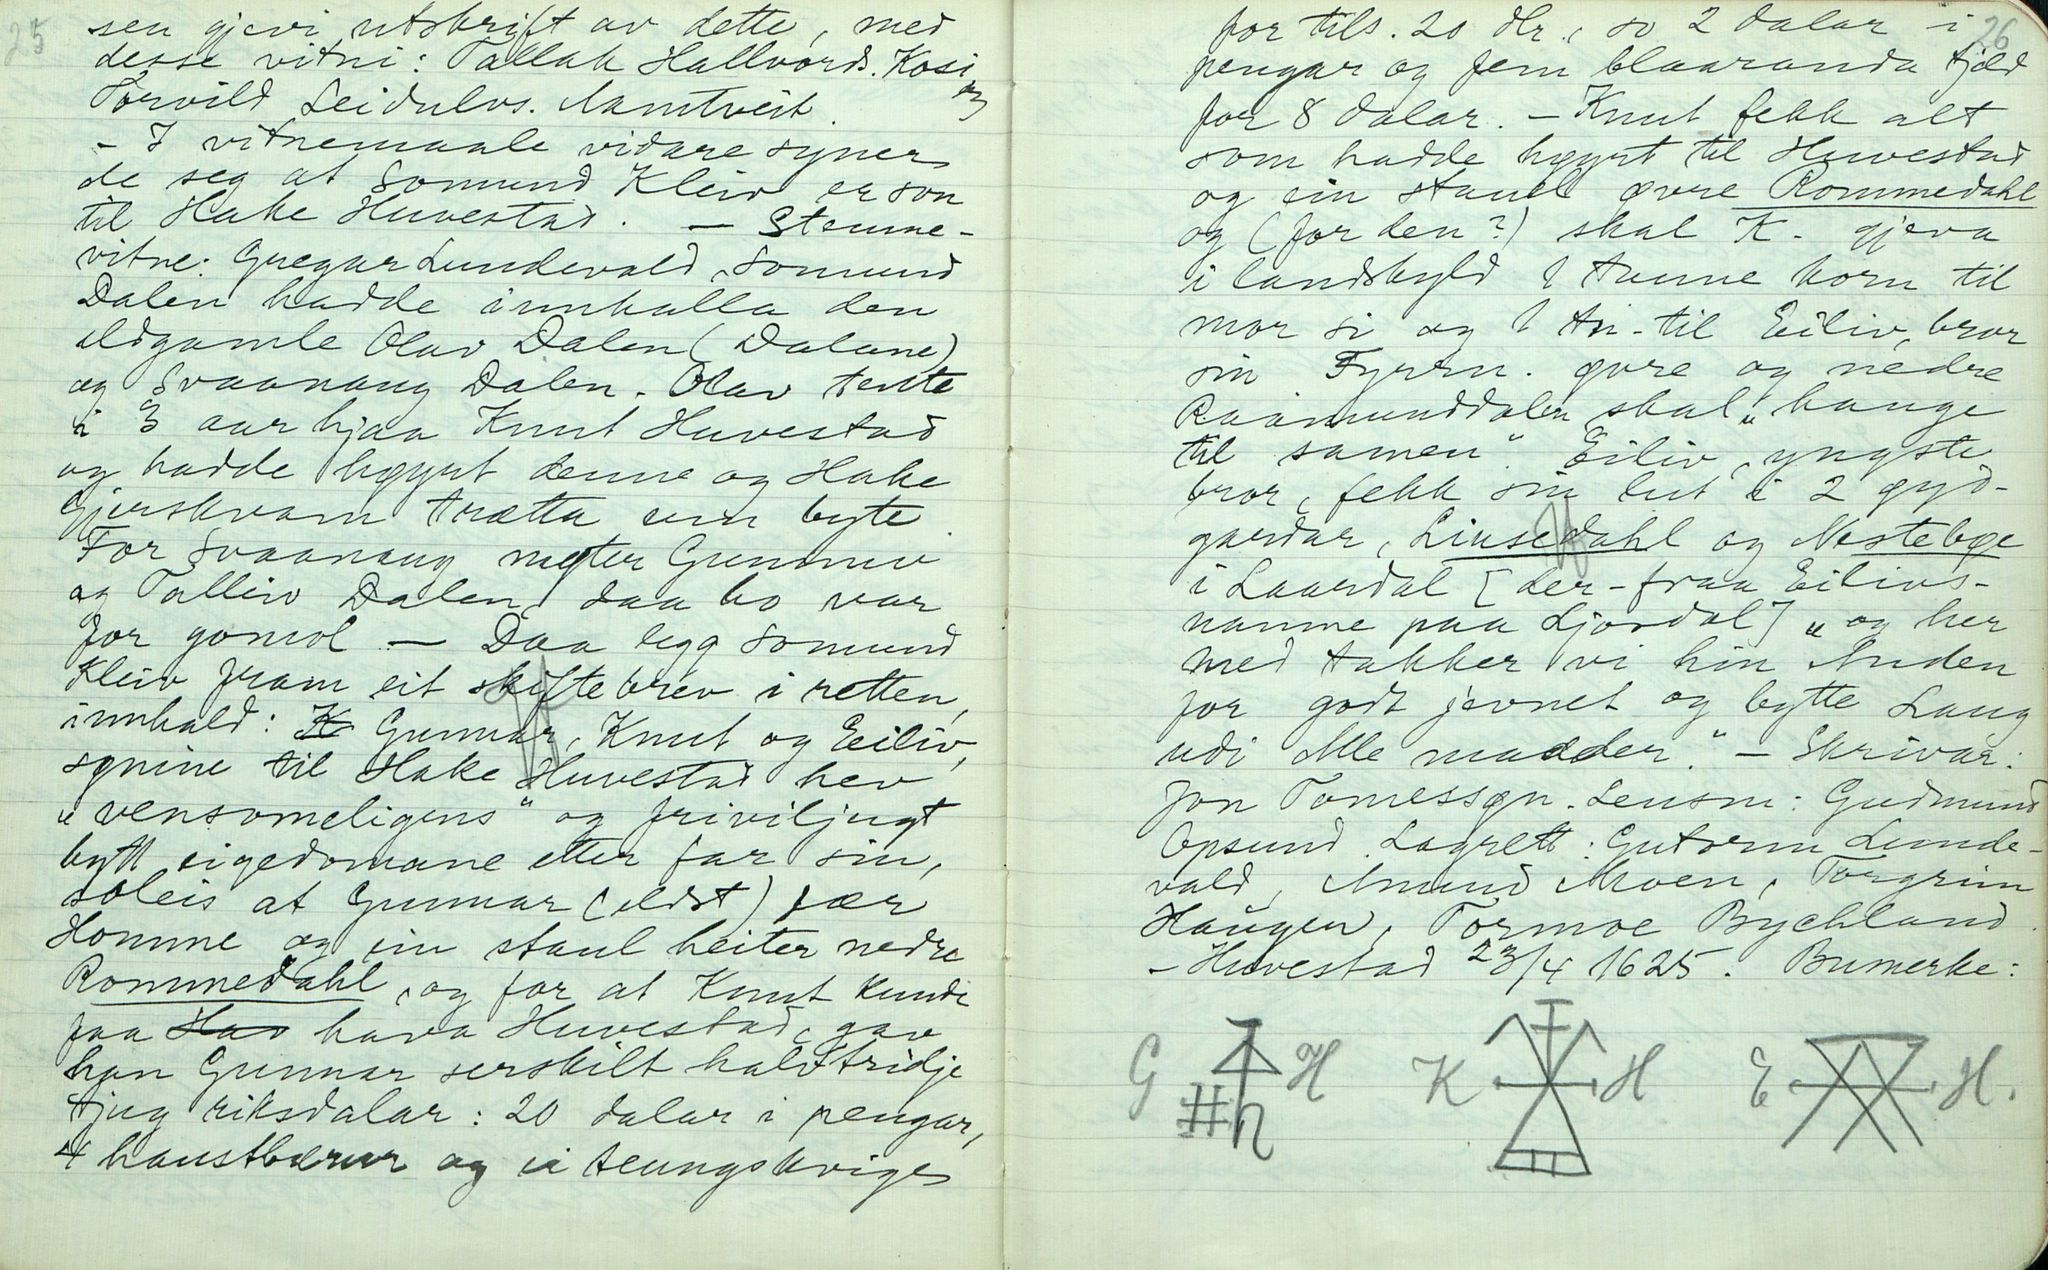 25
sen gjevi utskrift av dette, med
desse vitni: Tallak Hallvords. Kosi
Torvild Leidulvs. Mamtveit.
- I vitnemaale vidare syner
de seg at Somund Kleiv er son
til Hake Huvestad. — Stemne-
vitne: Gregar Lundevald, Somund
Dalen hadde innkalla den
eldgamle Olav Dalen (Dalane)
og Svaanaug Dalen. Olav tente
i 3 aar hjaa Knut Huvestad
og hadde høyrt denne og Hake
Gjerskvam trætta um byte.
For Svaanaug møter Gunnuv
og Talleiv Dalen, daa ho var
for gomol — Daa legg Somund
Kleiv fram eit skiftebrev i retten,
innhald: K Gunnar, Knut og Eiliv,
synine til Hake Huvestad hev
„vensomeligens“ og friviljugt
bytt eigedomane etter far sin,
soleis at Gunnar (eldst) fær
Homme og ein staul heiter nedre
Rommedahl, og for at Knut kunde
faa Hav hava Huvestad, gav
han Gunnar serskilt halvtridje
tjug riksdalar: 20 dalar i pengar,
4 haustbærur og ei teungskvige
26
for tils. 20 dlr., so 2 dalar i
pengar og fem blaaranda fjeld
for 8 dalar. — Knut fekk alt
som hadde høyrt til Huvestad
og ein staul øvre Rommedahl
og (for den?) skal K. gjeva
i landskyld 1 tunne korn til
mor si og 1 tn. til Eiliv, bror
sin Fyrrn. øvre og nedre
Raamunddalen skal „hange
til samen“. Eiliv, yngste
bror, fekk sin lut i 2 øyd-
gardar, Liusedahl og Nestebøe
i Laardal [der-fraa Eilivs-
namne paa Ljosdal] „og her
med takker vi hin Anden
for godt jevnet og bytte Laug
udi Alle madder.“ — Skrivar:
Jon Tomessøn. Lensm: Gudmund
Opsund. Lagrett: Gutorm Lunde-
vald, Amund Moen, Torgrim
Haugen, Tormoe Bychland.
- Huvestad 23/4 1625. Bumerke:
G H K H E H.